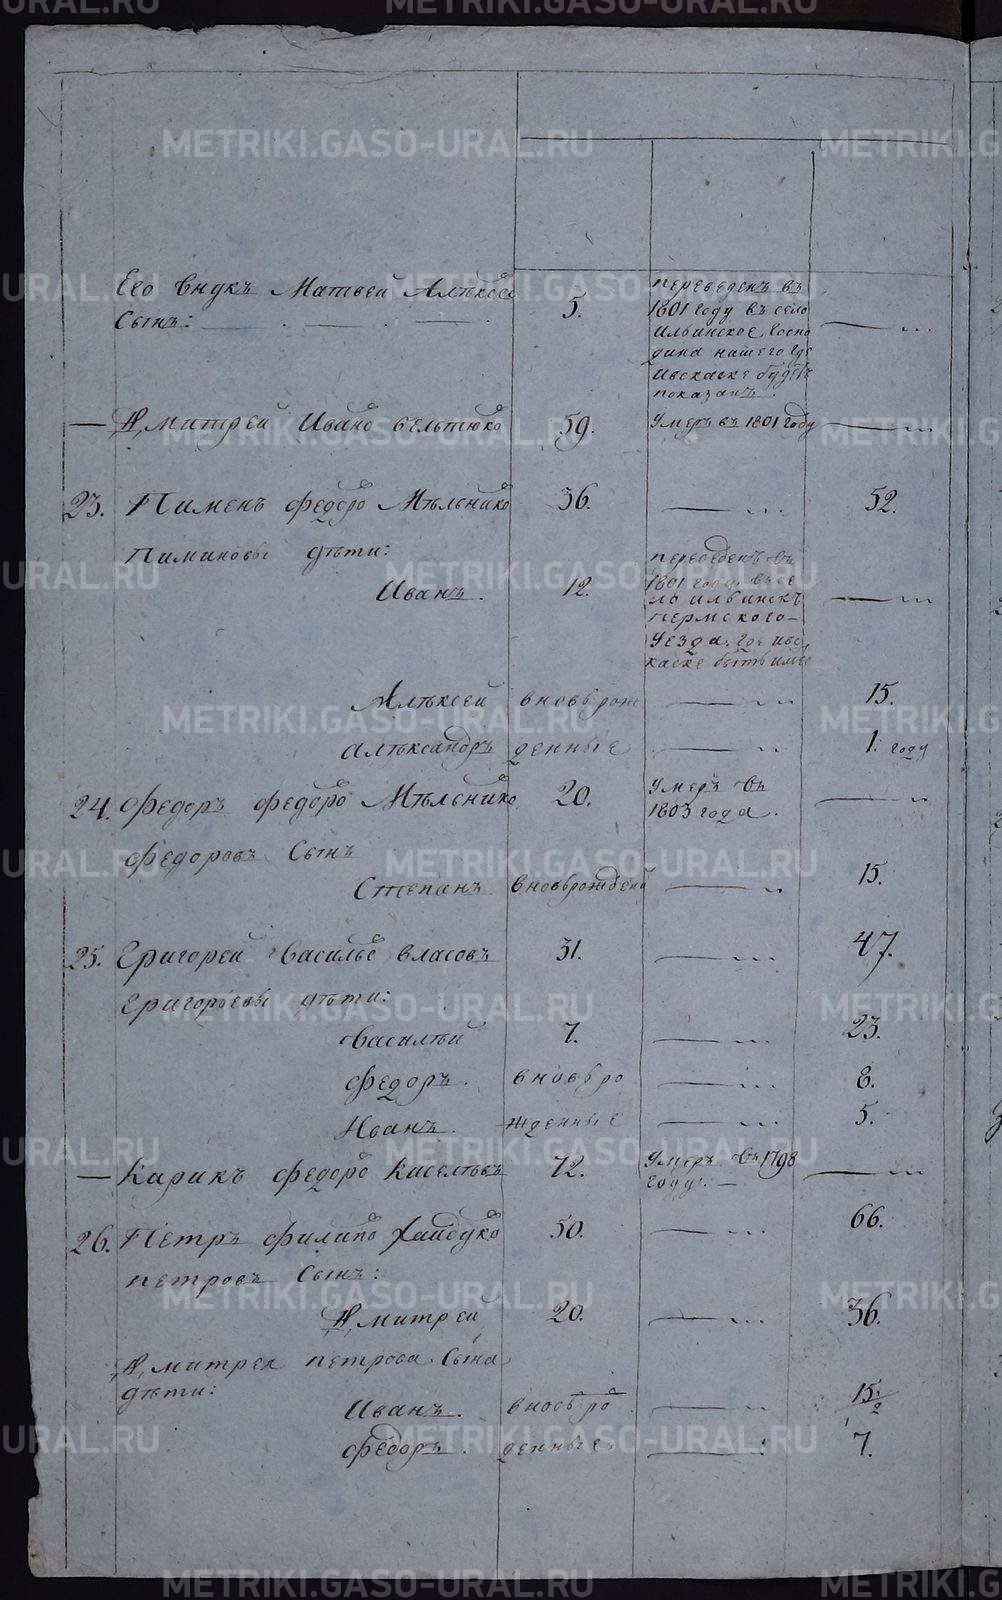 Его внукъ Матвей Алѣксѣе
Сынъ:
5.
переведенъ въ
1801 году въ село
ильинское госпо
дина нашего где
ивскаске будетъ
показанъ.
Дмитрей Ивано вельтюко
59.
умеръ въ 1801 году
23. Пименъ федоро Мѣлнико
36.
52.
Пиминовы дѣти:
Иванъ.
12.
переведенъ въ
1801 году. въ се
ло ильинскъ
пермского
уезда. где ивс
каске быть имѣе
Алѣксей вновьрож
15.
Алѣксандръ денные
1. году
24. федоръ федоро Мѣлнико
20.
умеръ въ
1803 года.
федоровъ Сынъ
Степанъ вновьрожденой
15.
25. Григорей Василье власовъ
31.
47.
Григорьевы дѣти:
Василѣй
7.
23.
федоръ. вновьро
8.
Иванъ. жденные
5.
Карикъ федоро Киселѣвъ
72.
умеръ въ 1798
году.
26. Петръ филипо Хайдуко
50.
66.
петровъ Сынъ:
Дмитрей
20.
36.
Дмитрея петрова Сына
дѣти:
Иванъ. вновьро
15 1/2
федоръ. денные
7.
METRIKI.GASO-URAL.RU